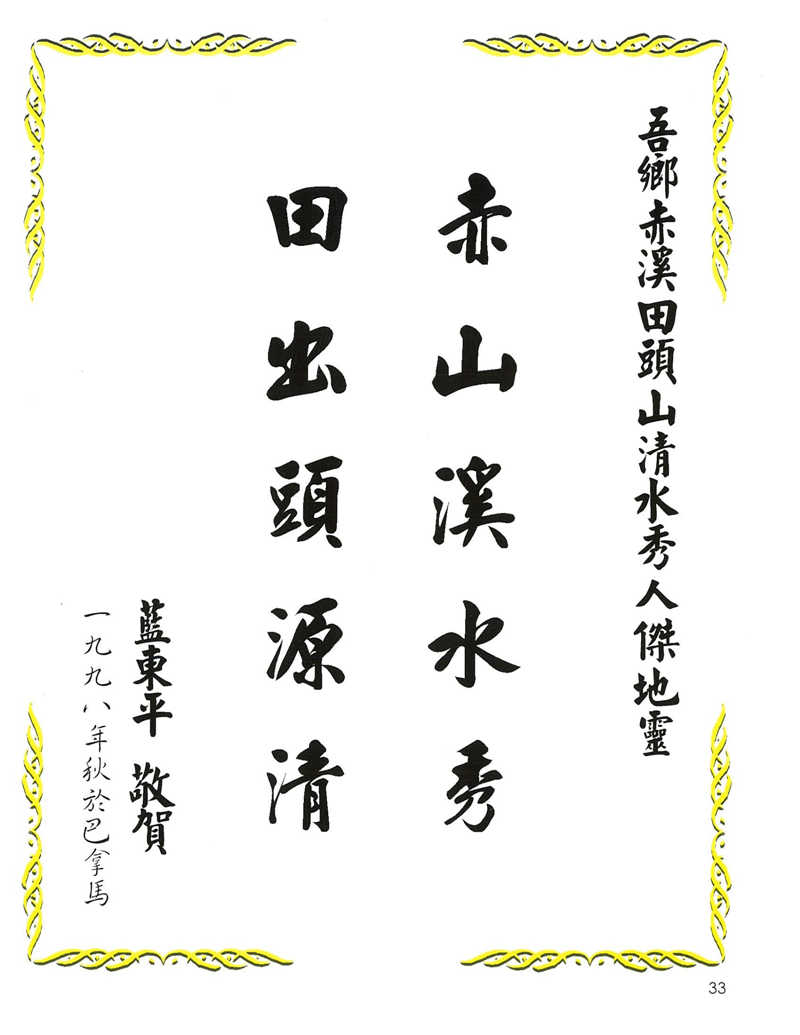 吾鄉赤溪田頭山清水秀人傑地靈
赤山溪水秀
田出頭源清
藍東平 敬賀
一九九八年秋於巴拿馬
33